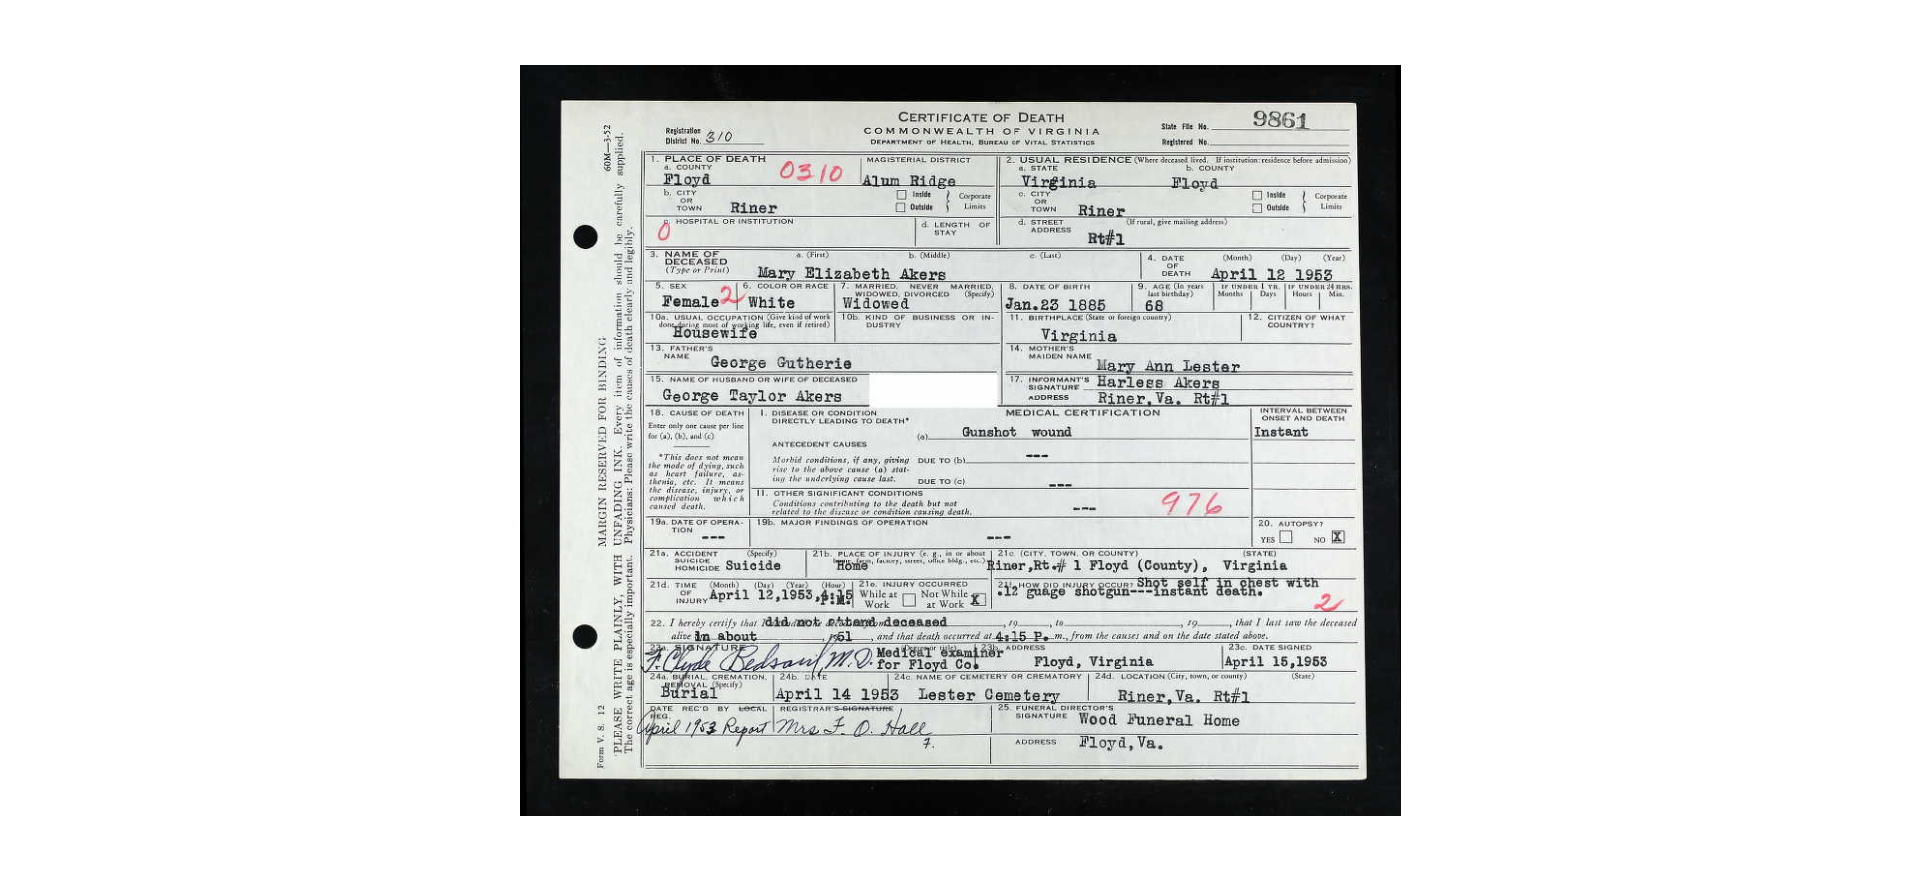 CERTIFICATE OF DEATH
COMMONWEALTH OF VIRGINIA
DEPARTMENT OF HEALTH, BUREAU OF VITAL STATISTICS
Registration District No. 310
State File No. 9861
Registered No.
60M—3-52
MARGIN RESERVED FOR BINDING
PLEASE WRITE PLAINLY, WITH UNFADING INK. Every item of information should be carefully supplied.
The correct age is especially important. Physicians: Please write the causes of death clearly and legibly.
Form V. S. 12
1. PLACE OF DEATH
a. COUNTY
Floyd
0310
MAGISTERIAL DISTRICT
Alum Ridge
2. USUAL RESIDENCE (Where deceased lived. If institution: residence before admission)
a. STATE
Virginia
b. COUNTY
Floyd
b. CITY OR TOWN Riner
Inside
Outside
Corporate Limits
c. CITY OR TOWN Riner
Inside
Outside
Corporate Limits
c. HOSPITAL OR INSTITUTION
0
d. LENGTH OF STAY
d. STREET ADDRESS (If rural, give mailing address)
Rt#1
3. NAME OF DECEASED (Type or Print)
a. (First) b. (Middle) c. (Last)
Mary Elizabeth Akers
4. DATE OF DEATH (Month) (Day) (Year)
April 12 1953
5. SEX
Female 2
6. COLOR OR RACE
White
7. MARRIED, NEVER MARRIED, WIDOWED, DIVORCED (Specify)
Widowed
8. DATE OF BIRTH
Jan.23 1885
9. AGE (In years last birthday)
68
IF UNDER 1 YR. Months Days
IF UNDER 24 HRS. Hours Min.
10a. USUAL OCCUPATION (Give kind of work done during most of working life, even if retired)
Housewife
10b. KIND OF BUSINESS OR INDUSTRY
11. BIRTHPLACE (State or foreign country)
Virginia
12. CITIZEN OF WHAT COUNTRY?
13. FATHER'S NAME George Gutherie
14. MOTHER'S MAIDEN NAME Mary Ann Lester
15. NAME OF HUSBAND OR WIFE OF DECEASED
George Taylor Akers
17. INFORMANT'S SIGNATURE Harless Akers
ADDRESS Riner,Va. Rt#1
18. CAUSE OF DEATH
Enter only one cause per line for (a), (b), and (c)
*This does not mean the mode of dying, such as heart failure, asthenia, etc. It means the disease, injury, or complication which caused death.
MEDICAL CERTIFICATION
I. DISEASE OR CONDITION DIRECTLY LEADING TO DEATH*
(a) Gunshot wound
INTERVAL BETWEEN ONSET AND DEATH
Instant
ANTECEDENT CAUSES
Morbid conditions, if any, giving rise to the above cause (a) stating the underlying cause last.
DUE TO (b) ---
DUE TO (c) ---
II. OTHER SIGNIFICANT CONDITIONS
Conditions contributing to the death but not related to the disease or condition causing death.
---
976
19a. DATE OF OPERATION
---
19b. MAJOR FINDINGS OF OPERATION
---
20. AUTOPSY?
YES NO X
21a. ACCIDENT SUICIDE HOMICIDE (Specify)
Suicide
21b. PLACE OF INJURY (e. g., in or about home, farm, factory, street, office bldg., etc.)
Home
21c. (CITY, TOWN, OR COUNTY) (STATE)
Riner,Rt.# 1 Floyd (County), Virginia
21d. TIME OF INJURY (Month) (Day) (Year) (Hour)
April 12,1953,4:15 P.M.
21e. INJURY OCCURRED
While at Work Not While at Work X
21f. HOW DID INJURY OCCUR? Shot self in chest with
.12 guage shotgun---instant death.
2
22. I hereby certify that I did not attend deceased , 19 , to , 19 , that I last saw the deceased
alive in about , 1951 , and that death occurred at 4:15 P. m., from the causes and on the date stated above.
23a. SIGNATURE
F. Clyde Bedsaul, M.D.
(Degree or title)
Medical examiner for Floyd Co.
23b. ADDRESS
Floyd, Virginia
23c. DATE SIGNED
April 15,1953
24a. BURIAL, CREMATION, REMOVAL (Specify)
Burial
24b. DATE
April 14 1953
24c. NAME OF CEMETERY OR CREMATORY
Lester Cemetery
24d. LOCATION (City, town, or county) (State)
Riner,Va. Rt#1
DATE REC'D BY LOCAL REG.
April 1953 Report
REGISTRAR'S SIGNATURE
Mrs F. O. Hall
7.
25. FUNERAL DIRECTOR'S SIGNATURE Wood Funeral Home
ADDRESS Floyd,Va.